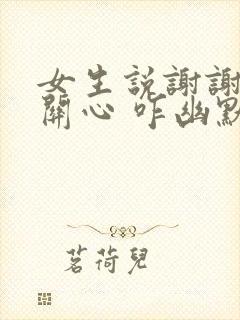 女生説謝謝
關心 咋幽默
茗荷兒